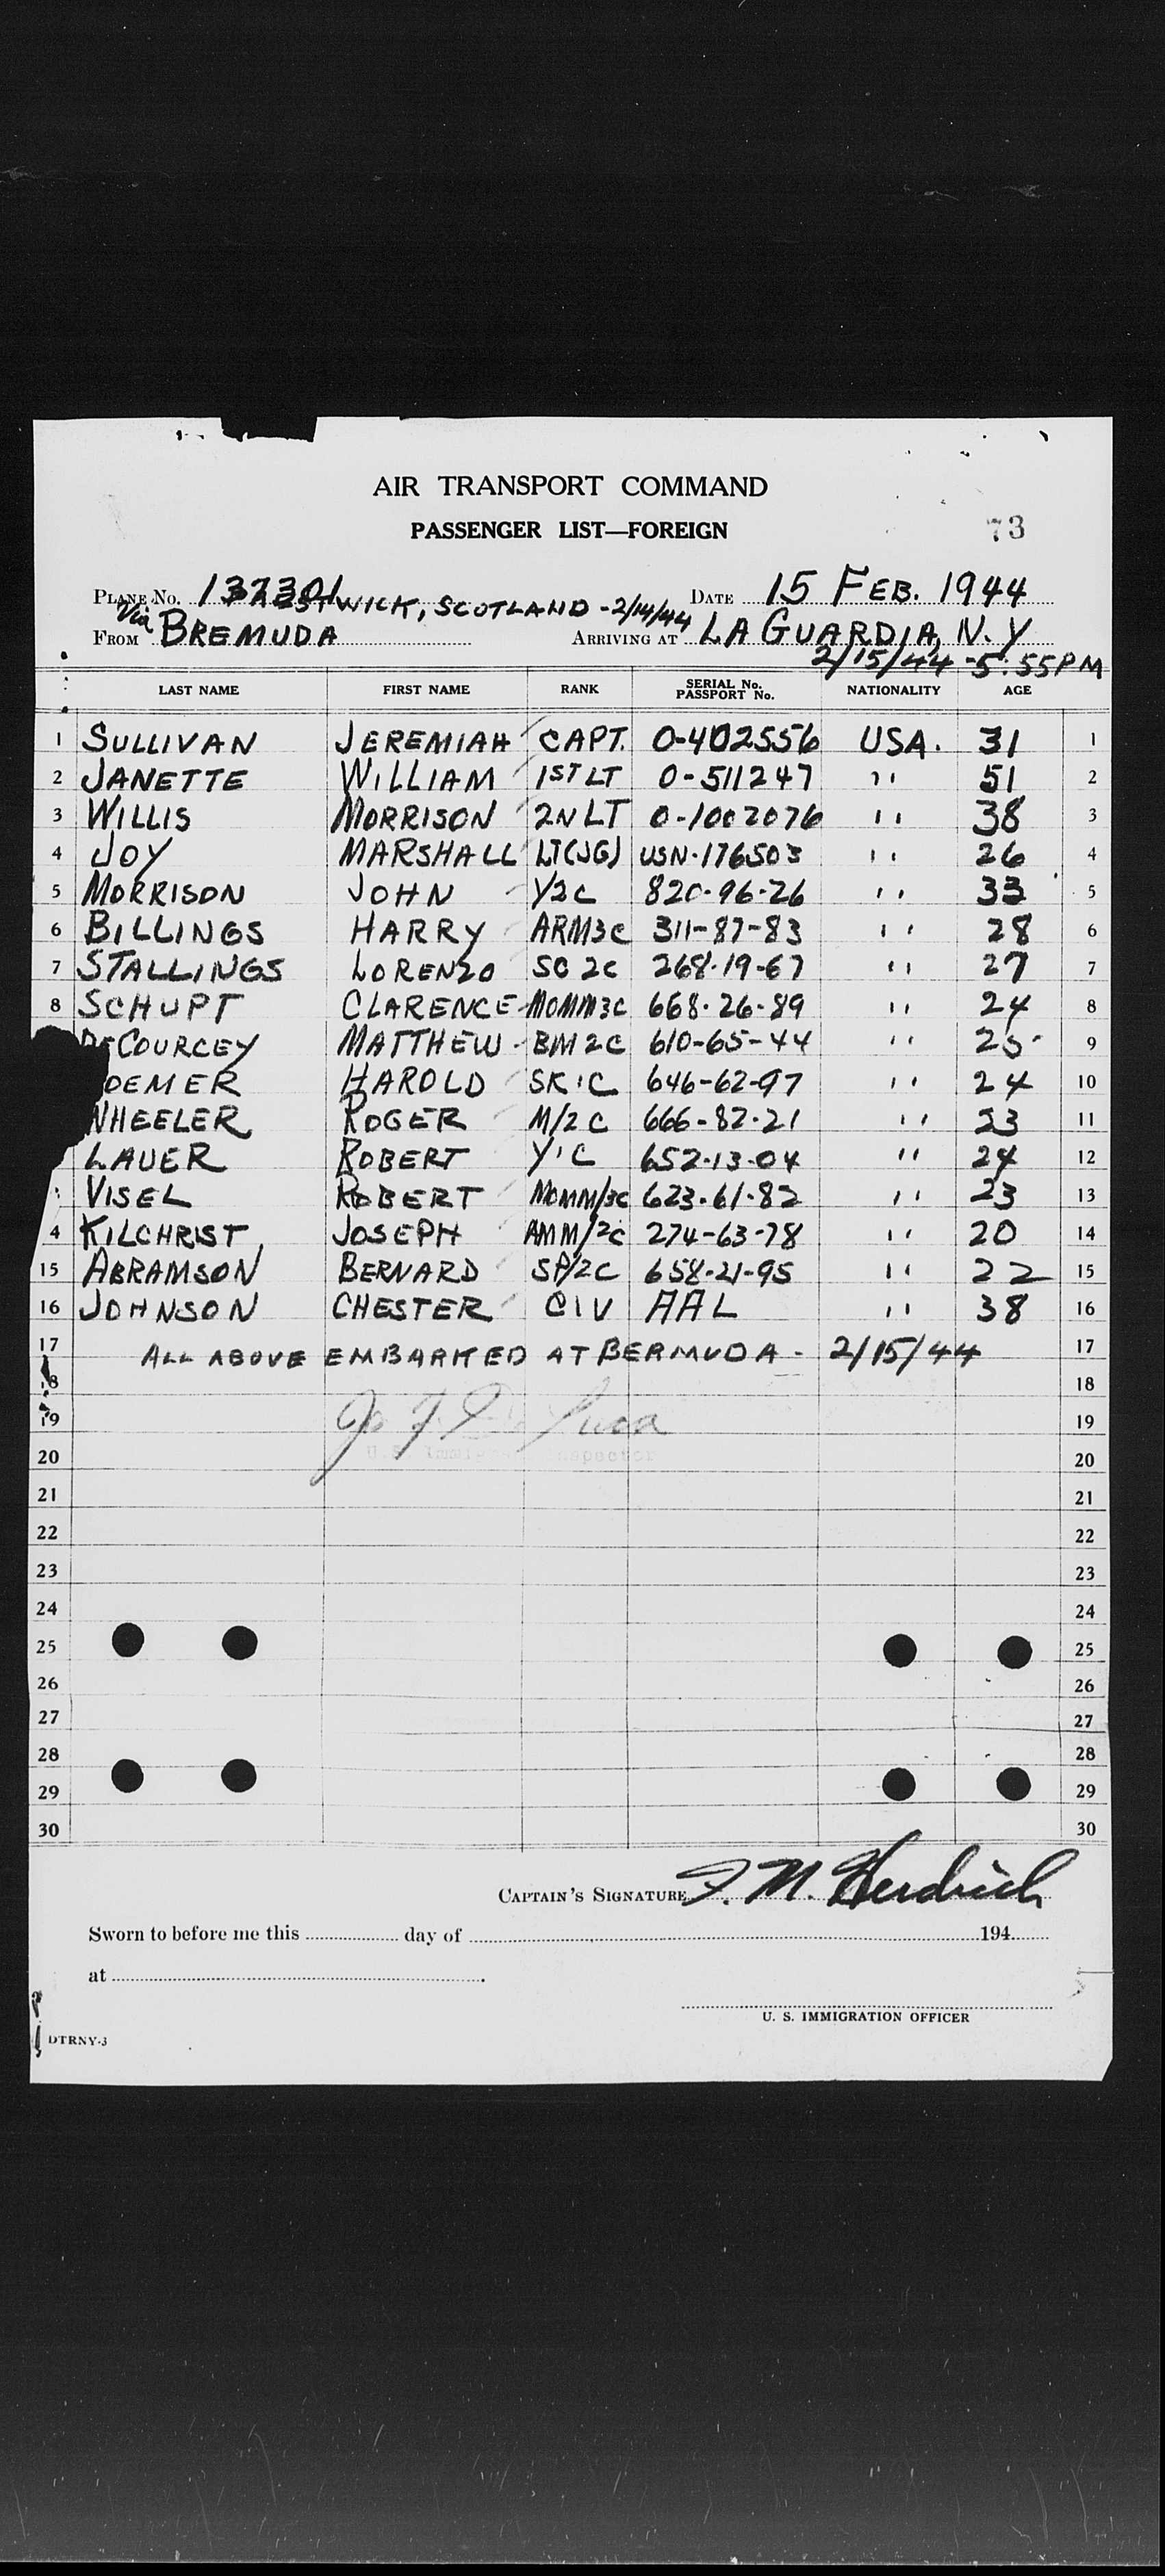 AIR TRANSPORT COMMAND
PASSENGER LIST—FOREIGN
73
PLANE No. 137301 DATE 15 FEB. 1944
Via PRESTWICK, SCOTLAND - 2/14/44
FROM BREMUDA ARRIVING AT LA GUARDIA, N.Y
2/15/44 - 5:55 PM
LAST NAME FIRST NAME RANK SERIAL No. PASSPORT No. NATIONALITY AGE
1 SULLIVAN JEREMIAH CAPT. O-402556 USA. 31 1
2 JANETTE WILLIAM 1ST LT O-511247 " 51 2
3 WILLIS MORRISON 2N LT O-1002076 " 38 3
4 JOY MARSHALL LT(JG) USN-176503 " 26 4
5 MORRISON JOHN Y2C 820-96-26 " 33 5
6 BILLINGS HARRY ARM3C 311-87-83 " 28 6
7 STALLINGS LORENZO SC 2C 268-19-67 " 27 7
8 SCHUPT CLARENCE MOMM3C 668-26-89 " 24 8
DECOURCEY MATTHEW BM2C 610-65-44 " 25 9
OEMER HAROLD SK1C 646-62-97 " 24 10
WHEELER ROGER M/2C 666-82-21 " 23 11
LAUER ROBERT Y1C 652-13-04 " 24 12
VISEL ROBERT MOMM/3C 623-61-82 " 23 13
4 KILCHRIST JOSEPH AMM/2C 274-63-78 " 20 14
15 ABRAMSON BERNARD SP/2C 658-21-95 " 22 15
16 JOHNSON CHESTER CIV AAL " 38 16
17 ALL ABOVE EMBARKED AT BERMUDA - 2/15/44 17
18 18
19 19
20 U.S. Immigrant Inspector 20
21 21
22 22
23 23
24 24
25 25
26 26
27 27
28 28
29 29
30 30
CAPTAIN'S SIGNATURE F. M. Herdrich
Sworn to before me this day of 194
at
U. S. IMMIGRATION OFFICER
DTRNY-3